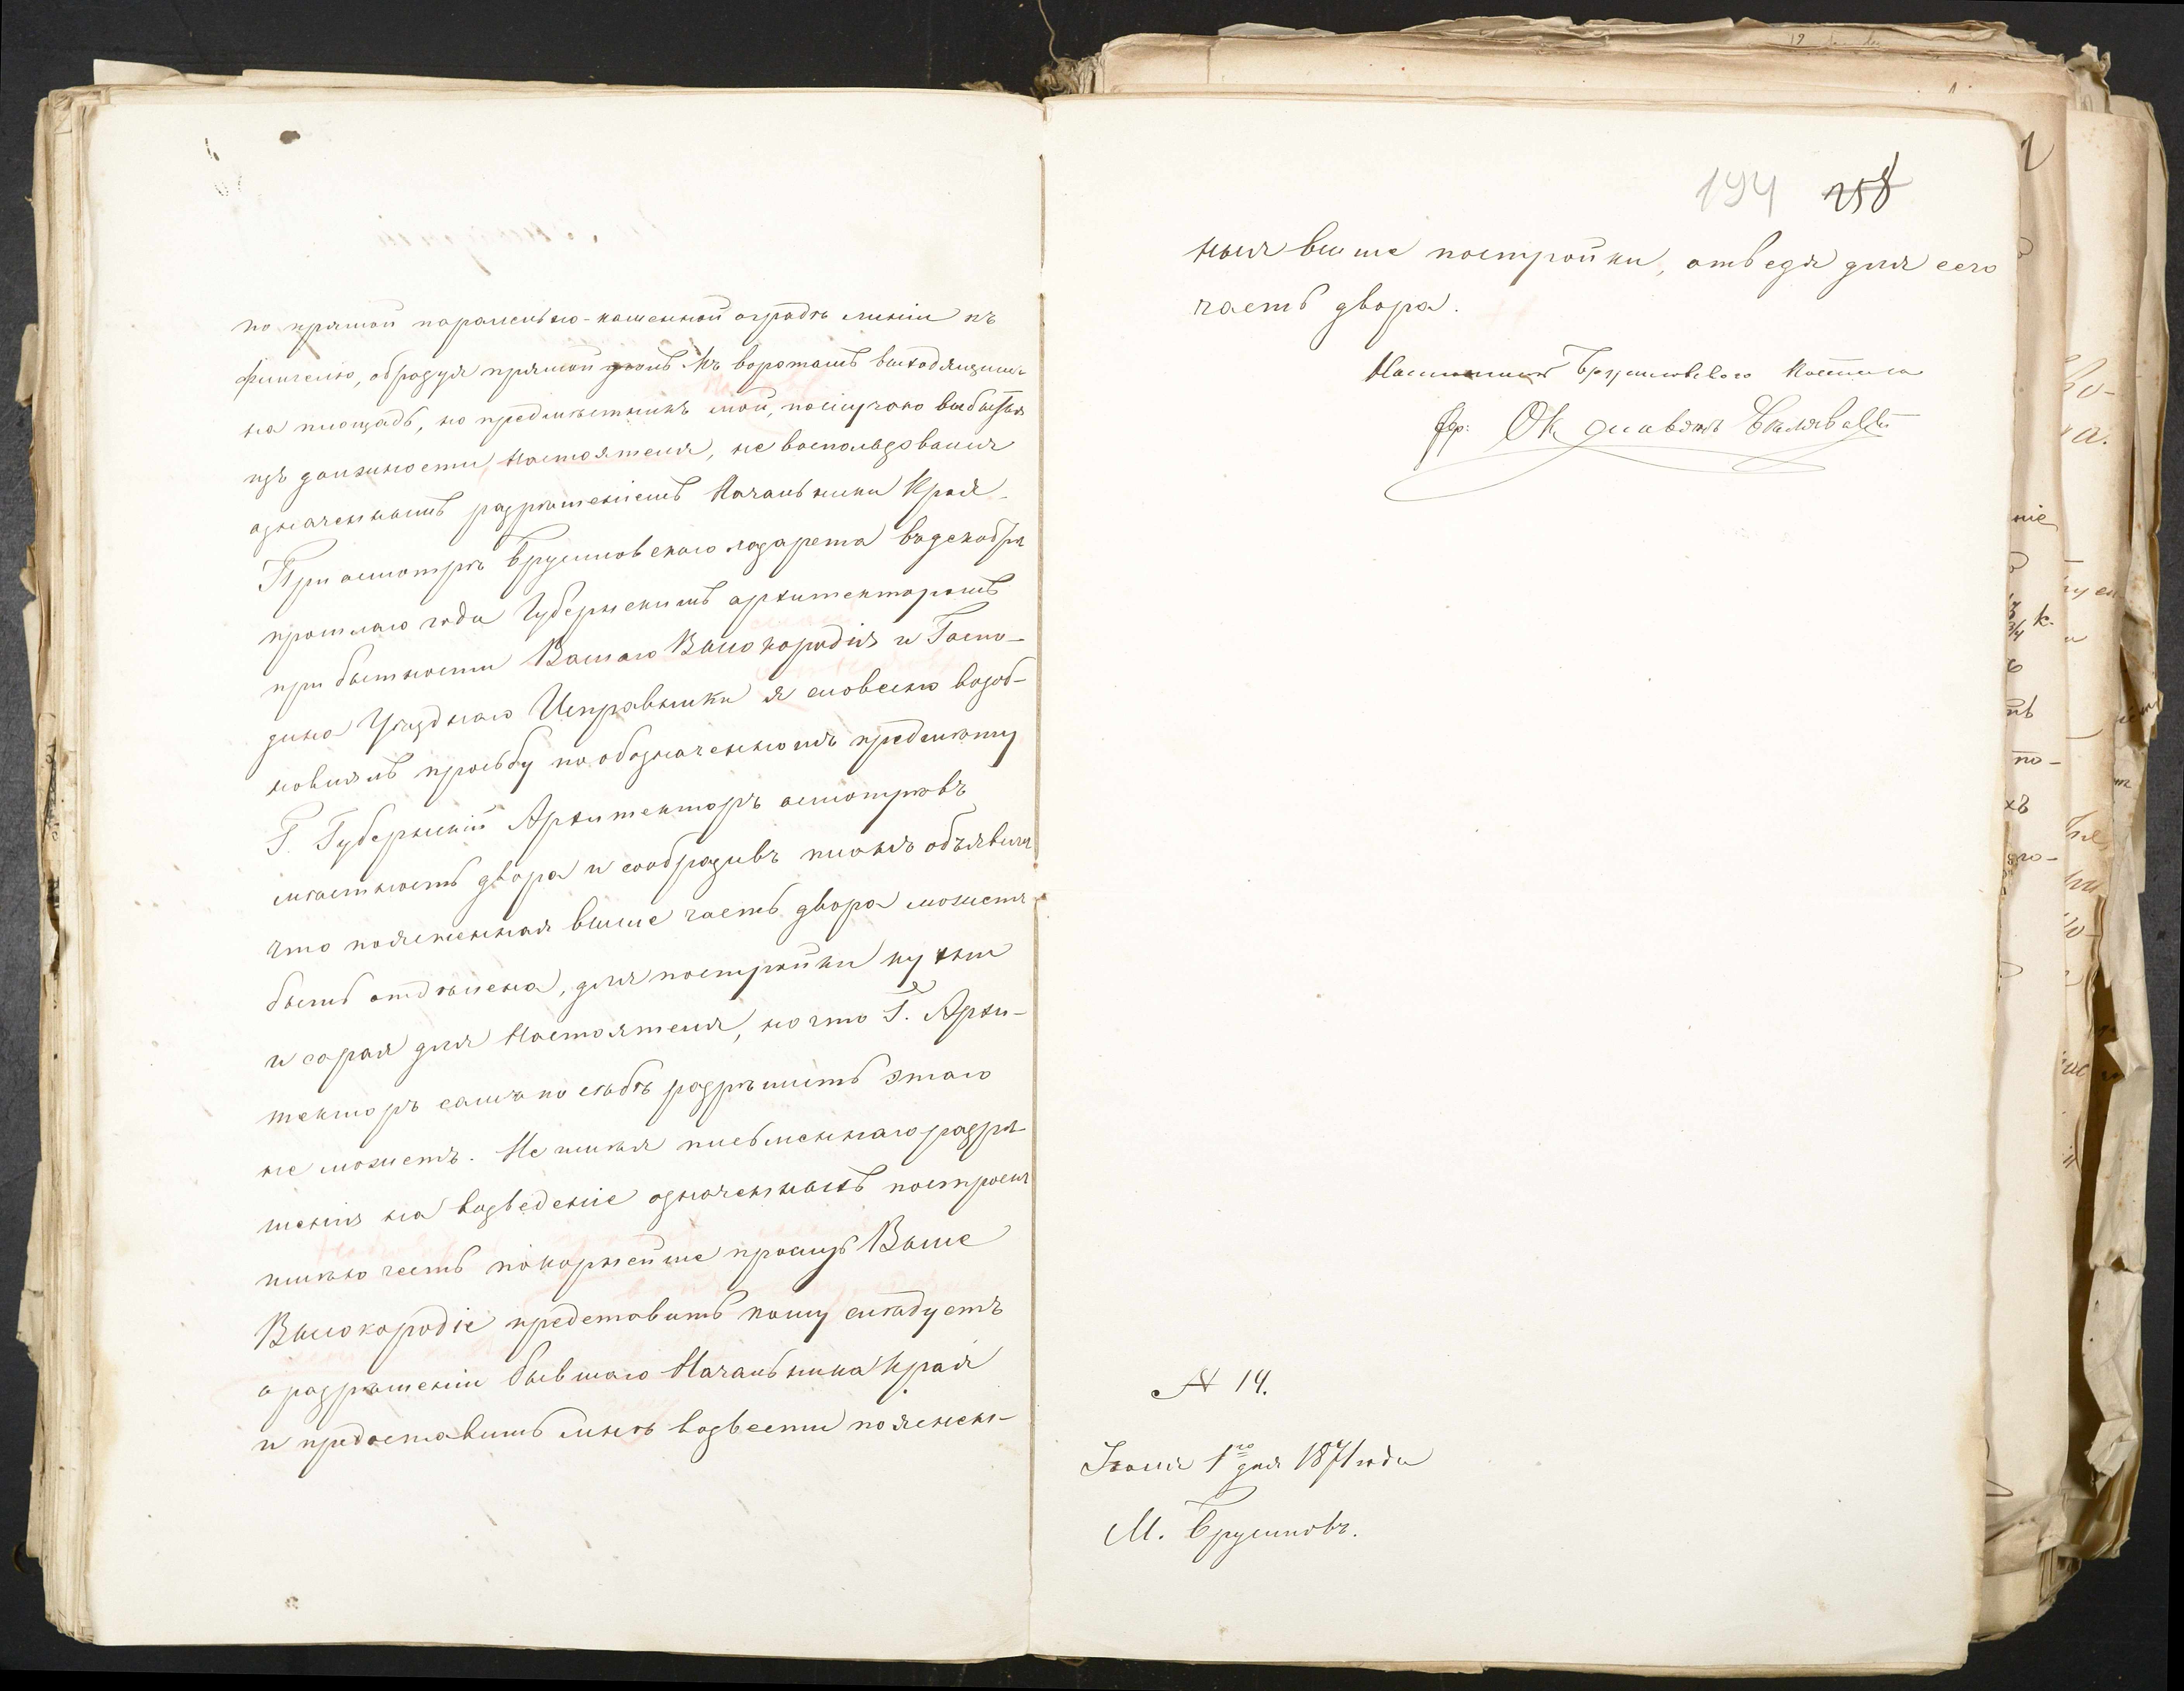 по прямой паралельно-каменной оградѣ линіи къ
флигелю, образуя прямой уголъ къ воротамъ выходящимъ
на площадь, но предмѣстникъ мой, по случаю выбытія
изъ должности Настоятеля, не воспользовался
означеннымъ разрѣшеніемъ Начальника Края.
При осмотрѣ Брусиловскаго лазарета въ декабрѣ
прошлаго года Губернскимъ архитекторомъ
при бытности Вашего Высокородія и Госпо-
дина Уѣзднаго Исправника я словесно возоб-
новилъ просьбу по обозначенномъ предмѣту
Г. Губернскій Архитекторъ осмотрѣвъ
мѣстность двора и сообразивъ планъ объявилъ
что поясненная выше часть двора можетъ
быть отдѣлена, для постройки кухни
и сарая для Настоятеля, но что Г. Архи-
текторъ самъ по себѣ разрѣшить этаго
не можетъ. Не имѣя письменнаго разрѣ-
шенія на возведеніе означенныхъ построекъ
имѣю честь покорнейше просить Ваше
Высокородіе представить кому слѣдуетъ
о разрѣшеніи бывшаго Начальника Края
и предоставить мнѣ возвести пояснен-
194 258
ныя выше постройки, отведя для сего
часть двора.
Брусиловскаго Костела
№ 14.
1го дня 1871 года
М. Брусиловъ.